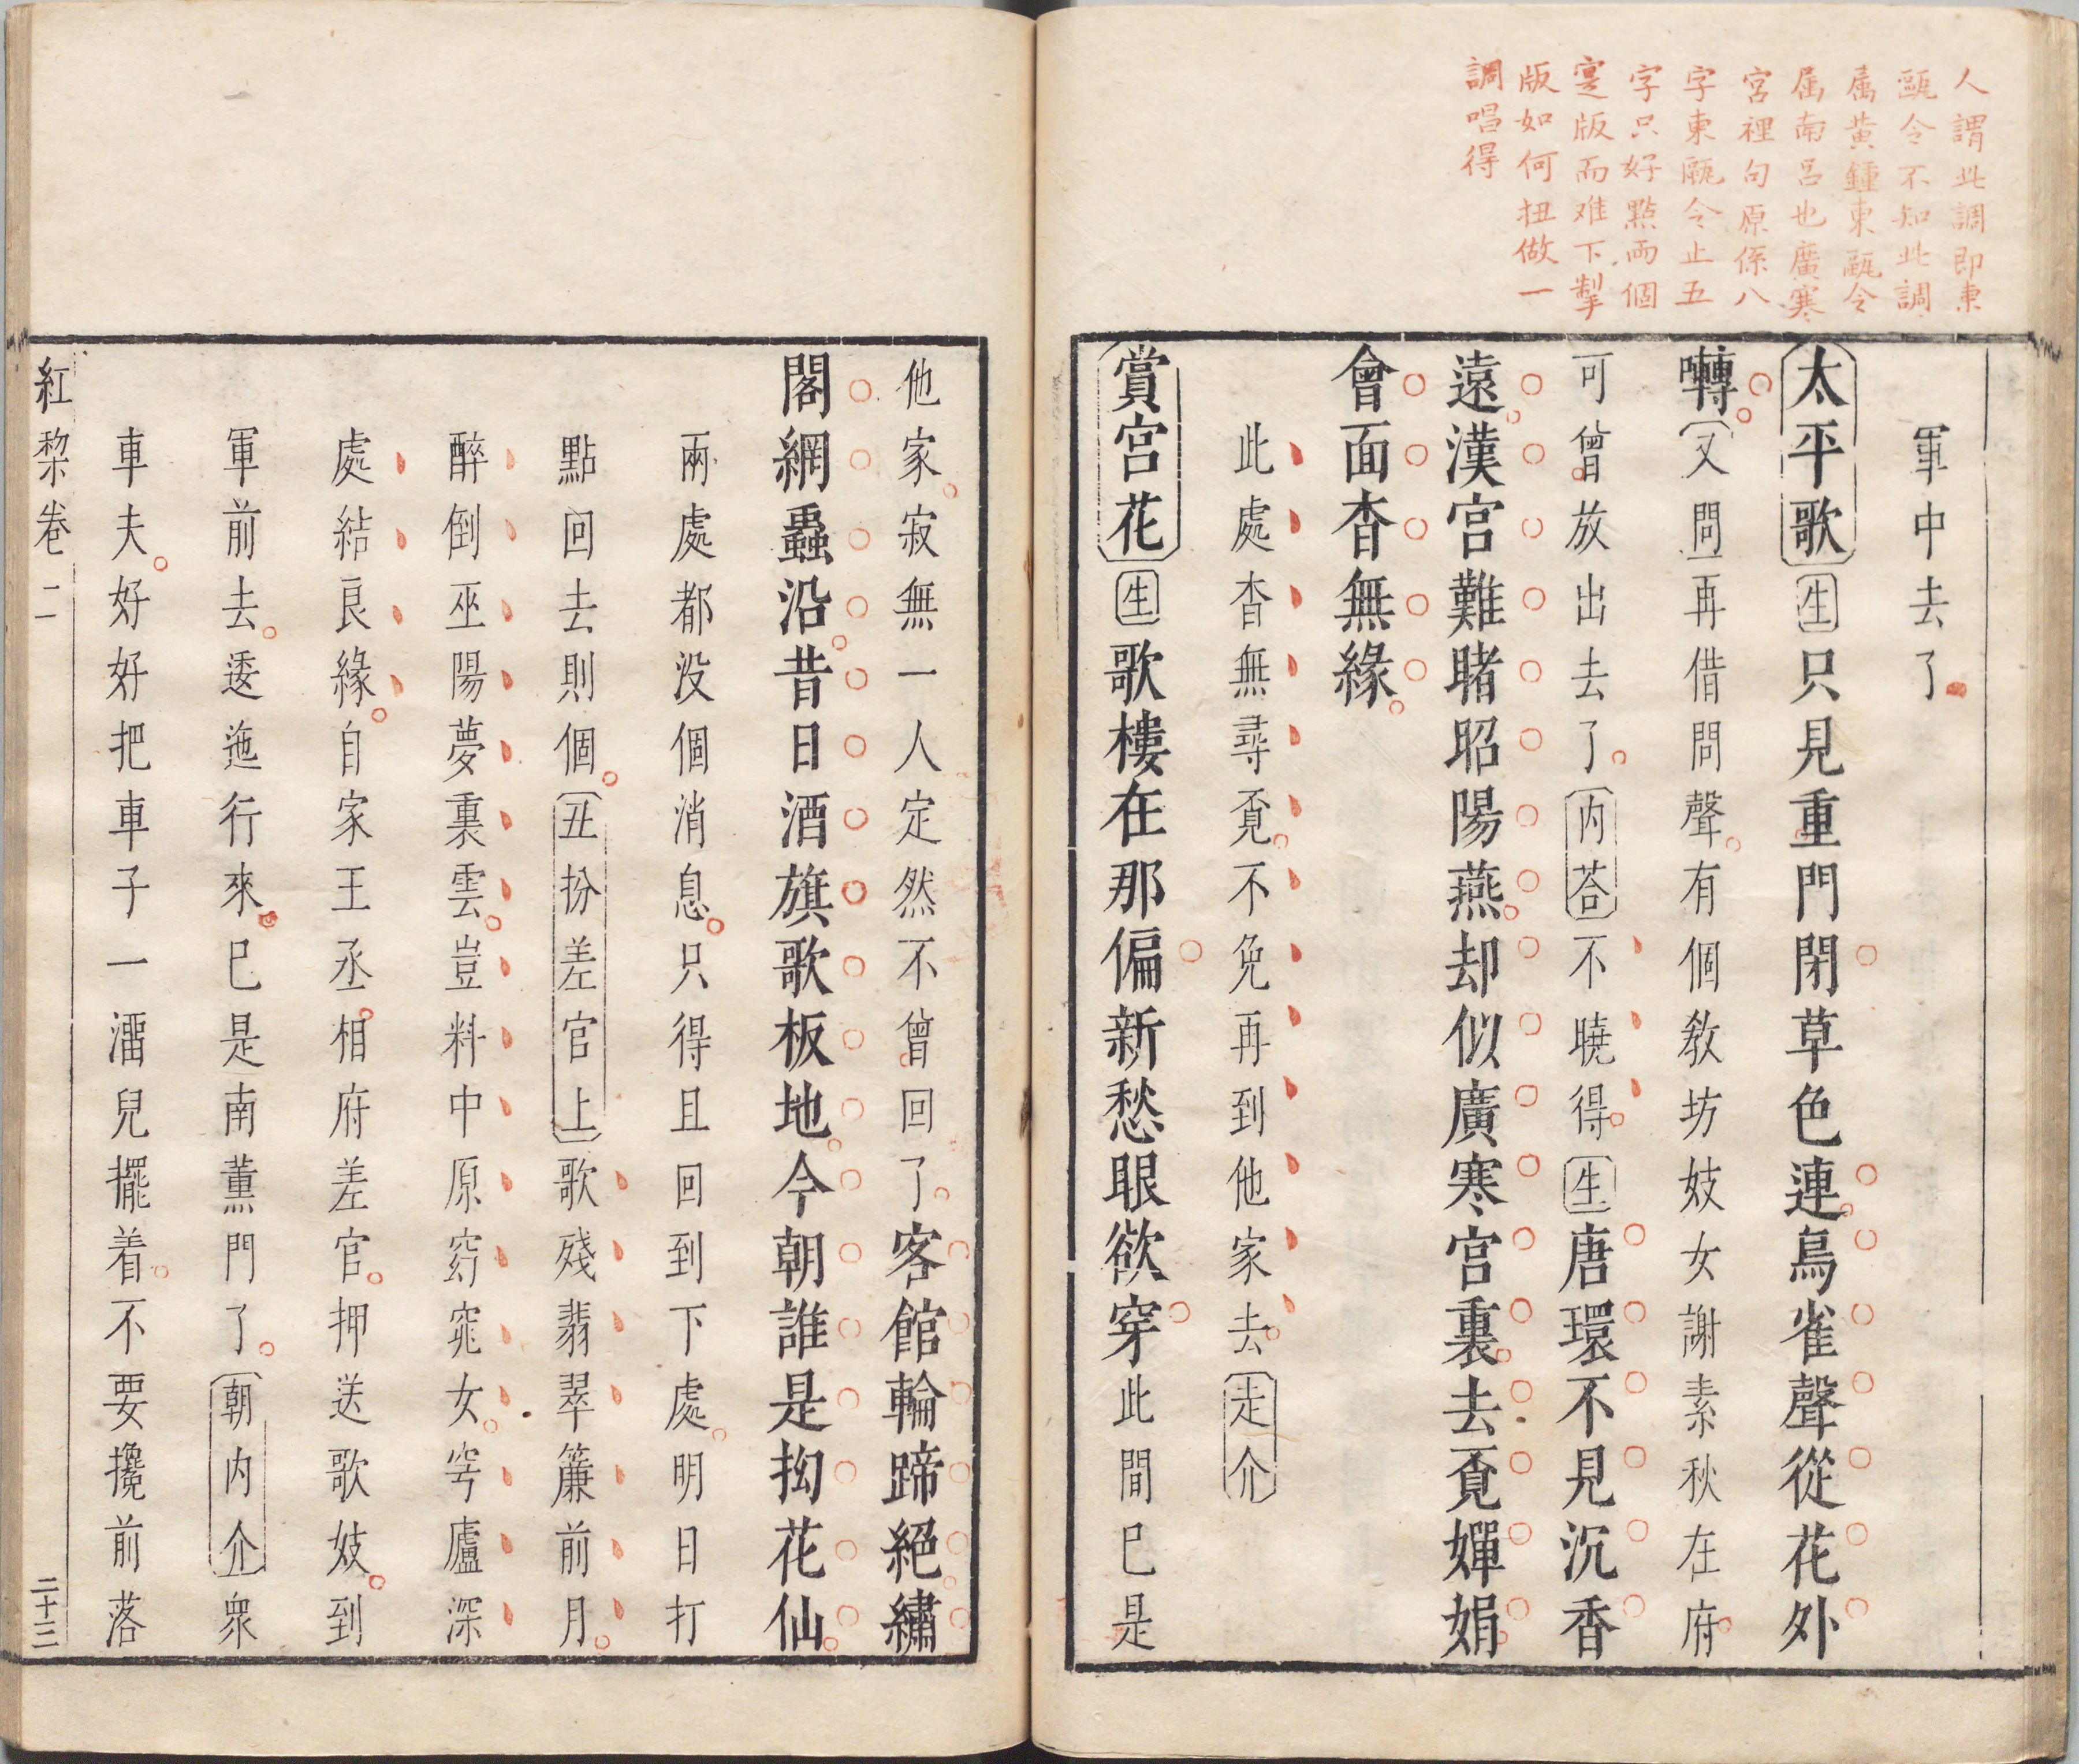 人謂此調即東
甌令不知此調
屬黃鍾東甌令
屆南呂也廣寒
宮裡句原係八
字東甌令止五
字只好點兩個
寔版而难下掣
版如何扭做一
調唱得
軍中去了
太平歌生只見重門閉草色連鳥雀聲從花外
囀又問再借問聲有個教坊妓女謝素秋在府
可曾放出去了內荅不曉得生唐環不見沉香
遠漢宮難睹昭陽燕却似廣寒宮裏去覔嬋娟
會面杳無緣
此處杳無尋覔不免再到他家去走介
賞宮花生歌樓在那偏新愁眼欲穿此間已是
他家寂無一人定然不曾回了客館輪蹄絕繡
閣網蟲沿昔日酒旗歌板地今朝誰是拗花仙
兩處都没個消息只得且回到下處明日打
點回去則個丑扮差官上歌殘翡翠簾前月
醉倒巫陽夢裏雲豈料中原窈窕女穹廬深
處結良緣自家王丞相府差官押送歌妓到
軍前去逶迤行來已是南薰門了朝内介衆
車夫好好把車子一溜兒擺着不要攙前落
紅棃卷二
二十三